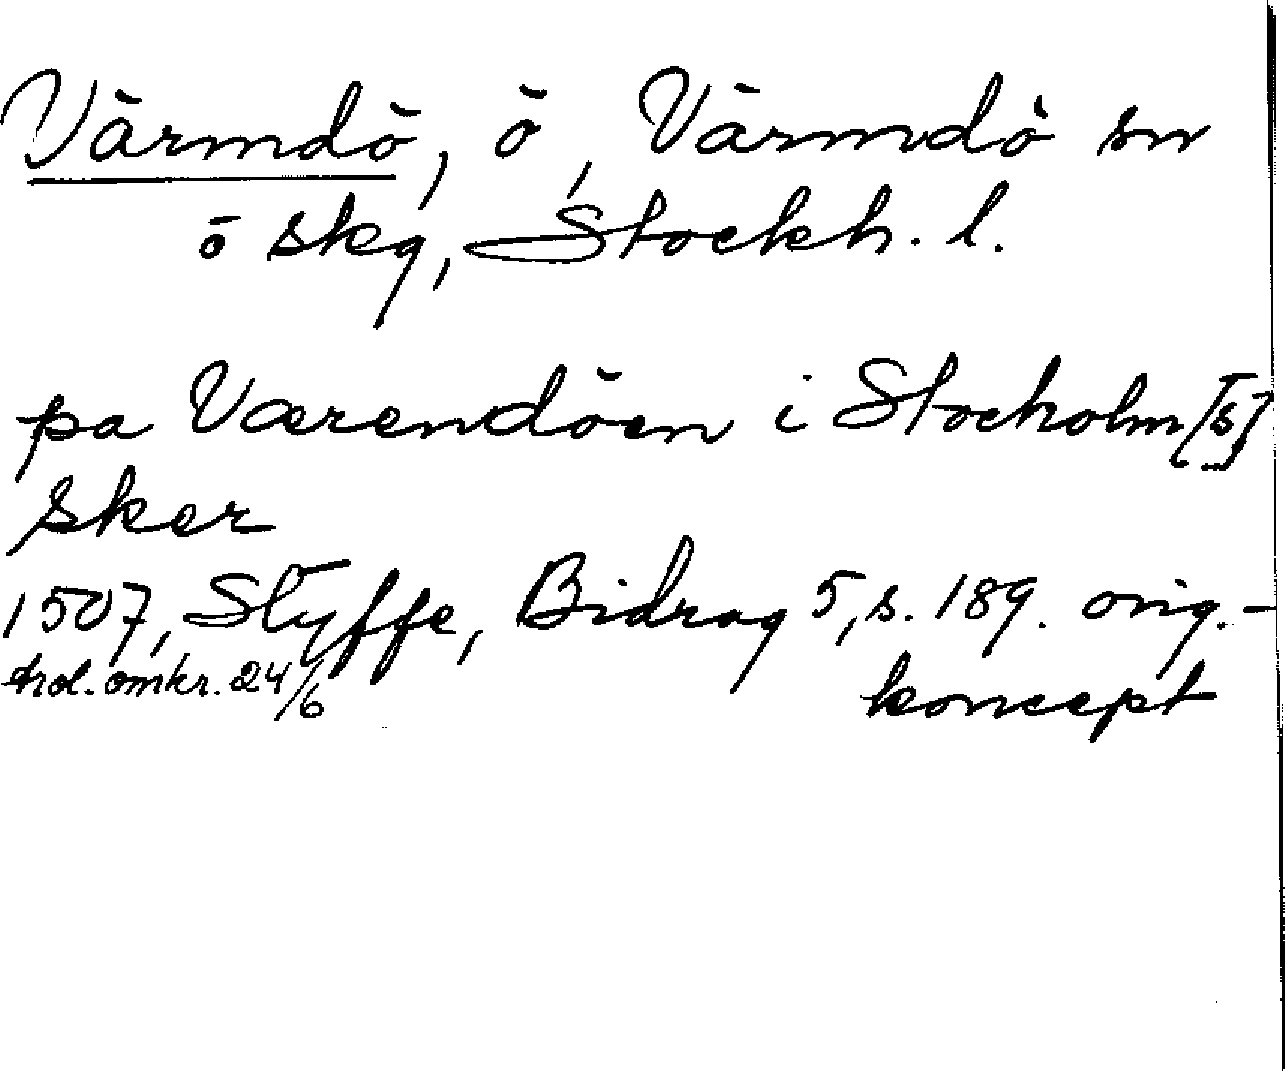 Värmdö, ö, Värmdö sn
ö skg, Stockh. l.
pa Værendöen i Stocholm[s]
sker
1507, Styffe, Bidrag 5, s. 189. orig.-
trol. omkr. 24/6 koncept